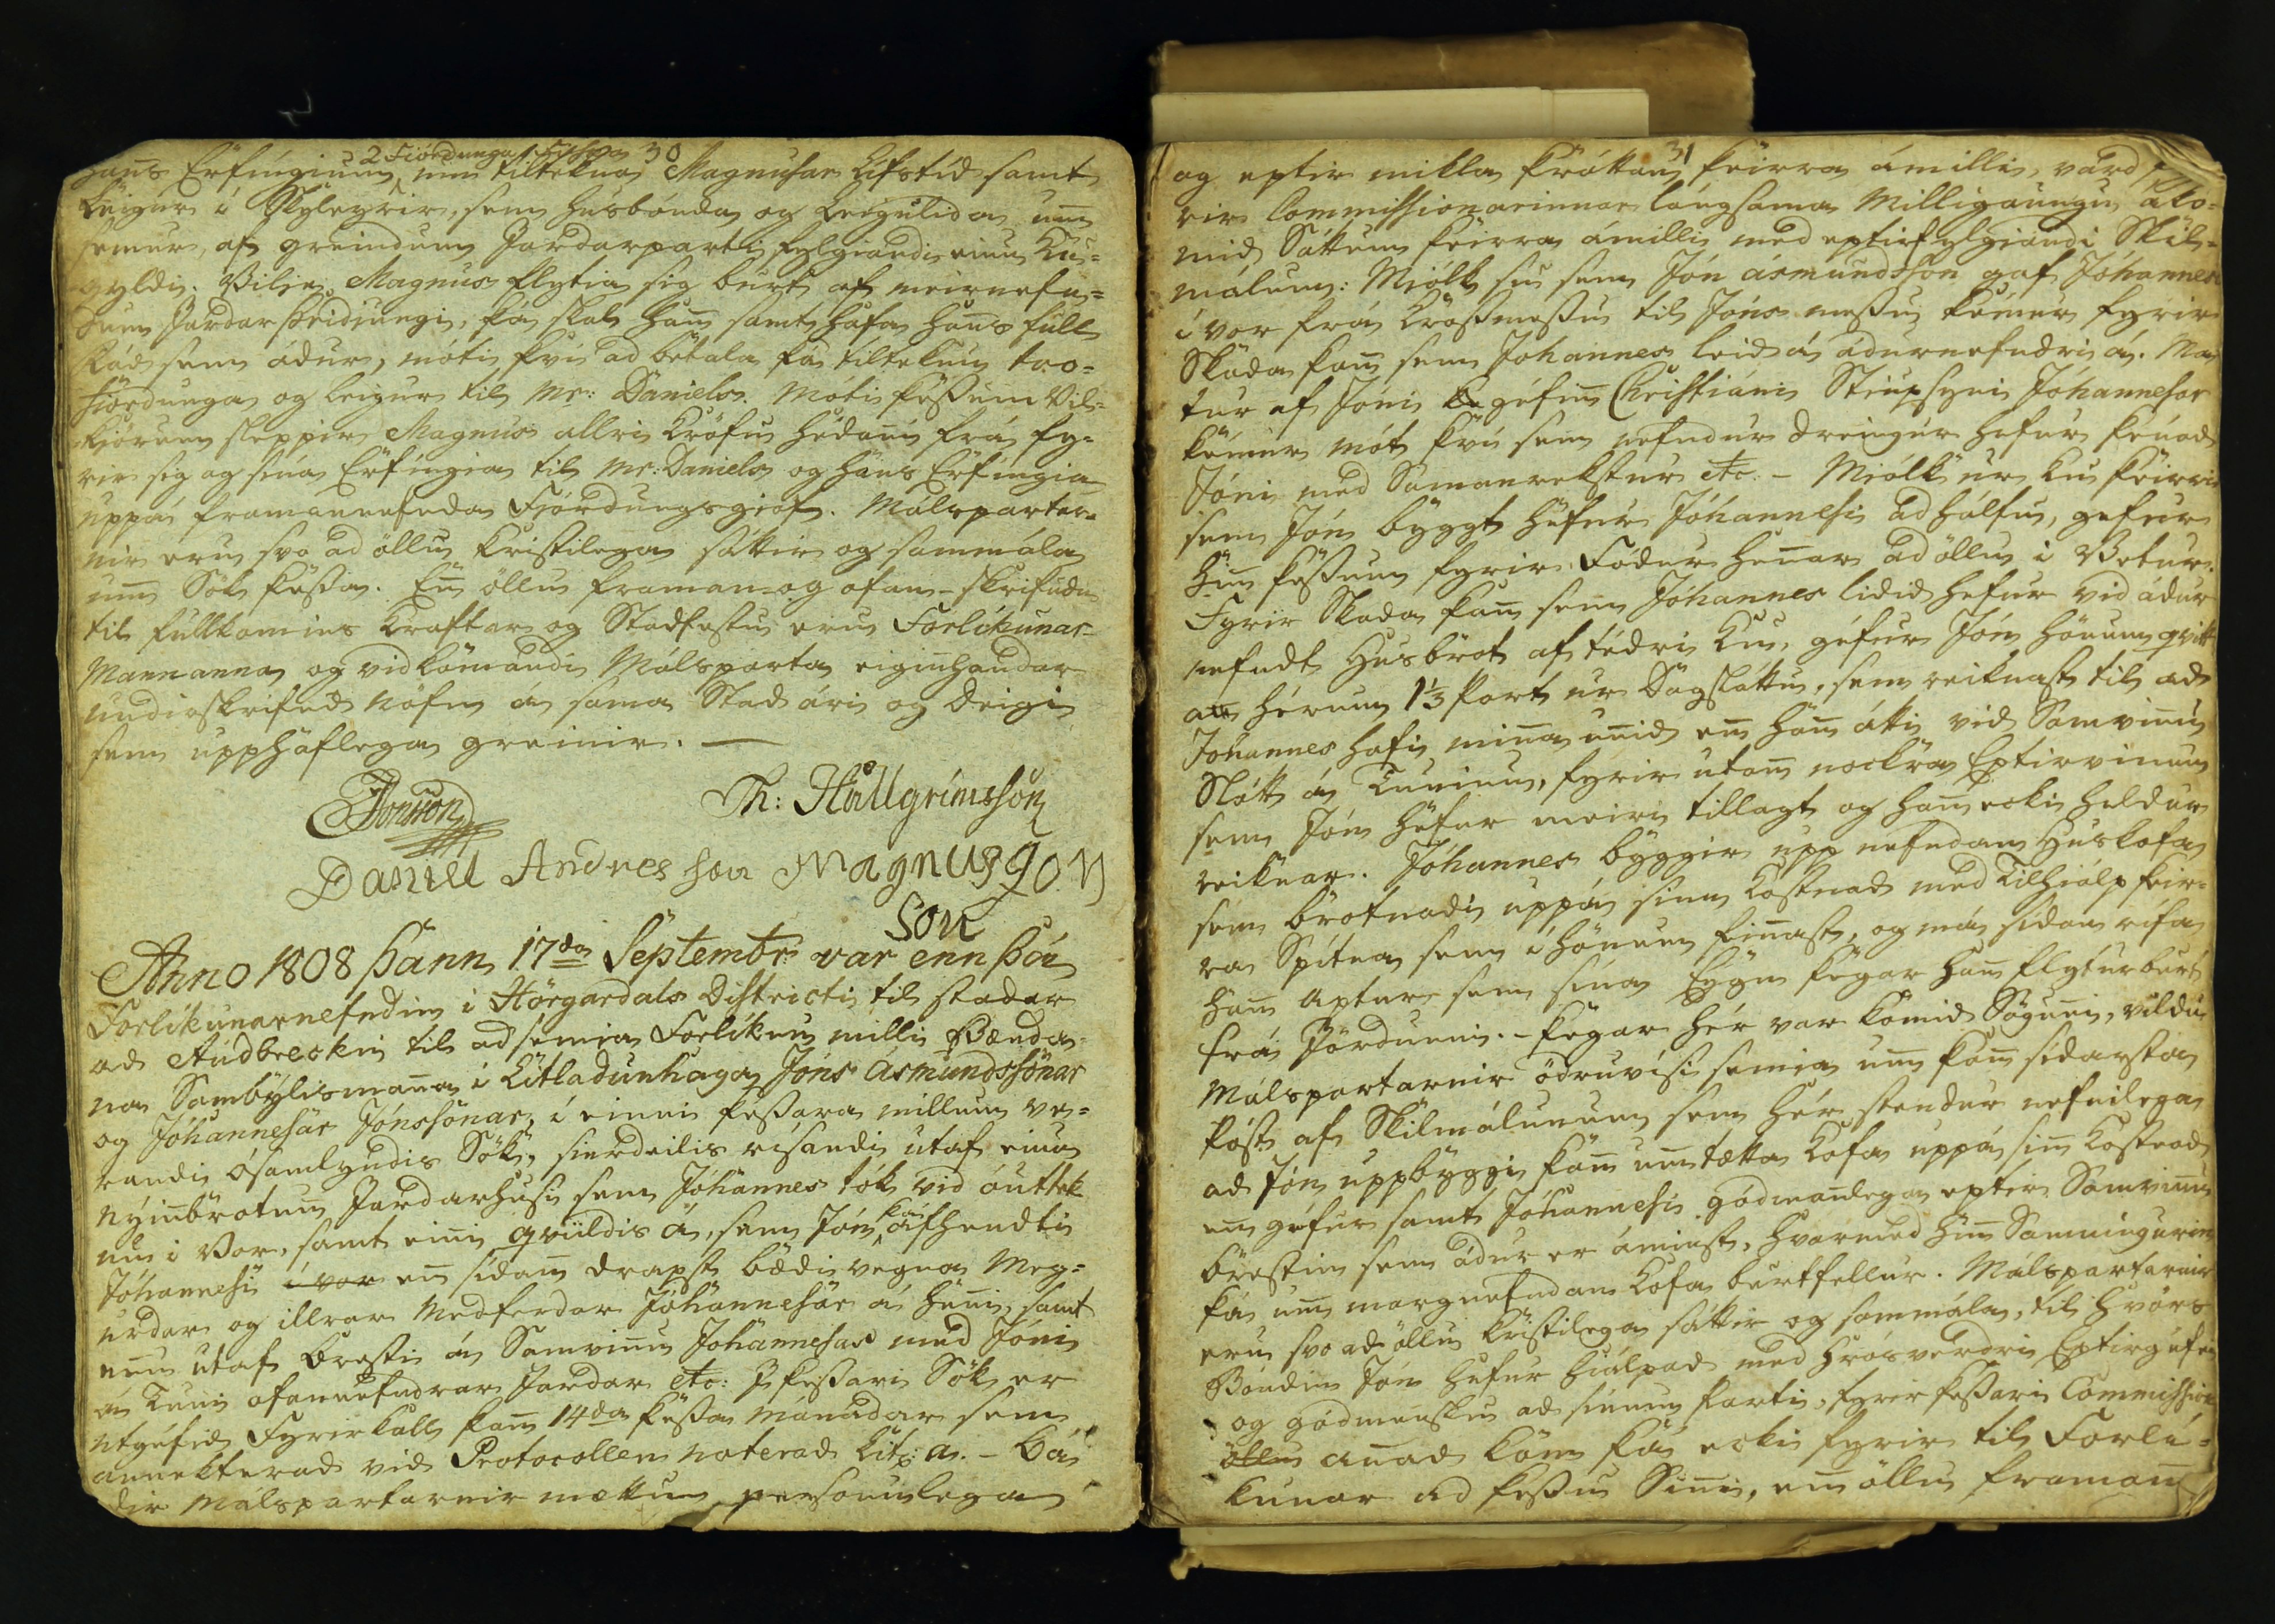 30
2 Fiórdunga Fisksa
hans Erfíngium, um tiltekna Magnusar Lífstíd samt
Leigur í Skyleyrir, sem husbónda og Leigulida um
semur, af greindum Jardarparti fylgiandi einu Ku-
gyldi. Vilie Magnus flytia sig burt af meirnefn-
dum Jardar þridiungi, þá skal hann samt hafa hans full
Rád sem ádur, móti því ad betala þá tilteknu tvo
fiórdunga og leigur til Mr: Daniels. Móti þessum Vil-
kiörum sleppir Magnus allri Kröfu hédann frá fy-
rir sig og sína Erfingia til Mr. Daniels og hans Erfingia
uppá framannefnda Fjórdungsgiöf. Málspartar-
nir eru svo ad öllu kristilega sáttir og sammála
um Sök þessa. Enn öllu framan- og ofan-skrifudu
til fullkomins Kraftar og Stadfestu eru Forlíkunar-
Mannanna og vidkomandi Málsparta eiginhandar
undirskrifud nöfn á sama Stad ári og deigi
sem upphaflega greinir. —
Jonsson
Th: Hallgrímsson
Daniel Andresson Magnus Jon
Son
Anno 1808 þann 17da Septembr: var enn þá
Forlíkunarnefndin i Hörgardals Districti til stadar
ad Audbrecku til ad semia Forlíkun milli Bænda
na Sambýlismanna i Litladunhaga Jóns Ásmundssonar
og Jóhannesar Jónssonar, i einni þessara millum ve-
randi ósamlyndis Sök, sierdeilis rísandi utaf einu
nýinnbrotnu Jardarhusi sem Jóhannes tók vid óuttek
nu i Vor, samt einni qvildis á, sem Jón þá afhendti
Jóhannesi i vor en sidann drapst bædi vegna Meg-
urdar og illrar Medferdar Jóhannesar á henni, samt
enn utaf Bresti á Samvinnu Jóhannesar med Jóni
á Tuni ofannefndrar Jardar etc: I þessari Sök er
utgefid Fyrirkall þann 14da þessa Mánadar sem
annekterad vid Protocollen noterad Litr: a. – Bá
dir Málspartarnir mættu persónulega
31
og eptir mikla þráttan þeirra ámilli, vard fy
rir Commissionarinnar lángsama Milligaungu áko-
mid Sáttum þeirra ámilli med eptirfylgiandi Skil-
málum: Miólk su sem Jón Ásmundsson gaf Jóhannes
i vor frá Krossmessu til Jóns messu kémur fyrir
Skada þann sem Johannes leid á ádurnefndri á. Ma
tur af Jóni gefinn Christiáni Stiupsyni Jóhannesar
kémur mót því sem nefndur dreingur hefur þénad
Jóni med Samanrekstur etc. – Miólk ur Ku þeirri
sem Jón byggt hefur Jóhannesi ad hálfu, gefur
hann þessum fyrir Fódur hennar ad öllu i Vetur.
Fyrir Skada þann sem Jóhannes lidid hefur vid ádur
nefndt Husbrot af tédri Ku, géfur Jón hönum qvitt
ann hérum 1⅓ Part ur Dagsláttu, sem reiknast til ad
Johannes hafi minna unnid enn hann átti vid Samvinnu
Slátt á Tuninu, fyrir utann nockra Eptirvinnu
sem Jón hefur meiri tillagt og hann ecki heldur
reiknar. Jóhannes byggir upp nefndann Huskofa
sem brotnadi uppá sinn Kostnad med Tilhiálp þeir-
ra Spítna sem i hönum finnast, og má sidan rífa
hann aptur sem sína Eign þegar hann flyturburt
frá Jördunni. – þegar hér var komid Sögunni, vildu
Málspartarnir ödruvísi semia um þann sídarsta
póst af Skilmálunum sem hér stendur nefnilega
ad Jón uppbyggi þann umtalta Kofa uppá sinn Kostnad
enn géfur samt Jóhannesi gódmannlega eptir Samvinnu
brestinn sem ádur er áminst, hvarmed hinn Samningurinn
þá um margnefndann Kofa burtfellur. Málspartarnir
eru svo ad öllu kristilega sáttir og sammála, til hvörs
Bondinn Jón hefur hiálpad med hrósverdri Eptirgéfni
og gódmensku ad sínum parti, fyrir þessari Commission
öllu annad kom þá ecki fyrir til Forlí-
kunar ad þessu Sinni, enn öllu framan